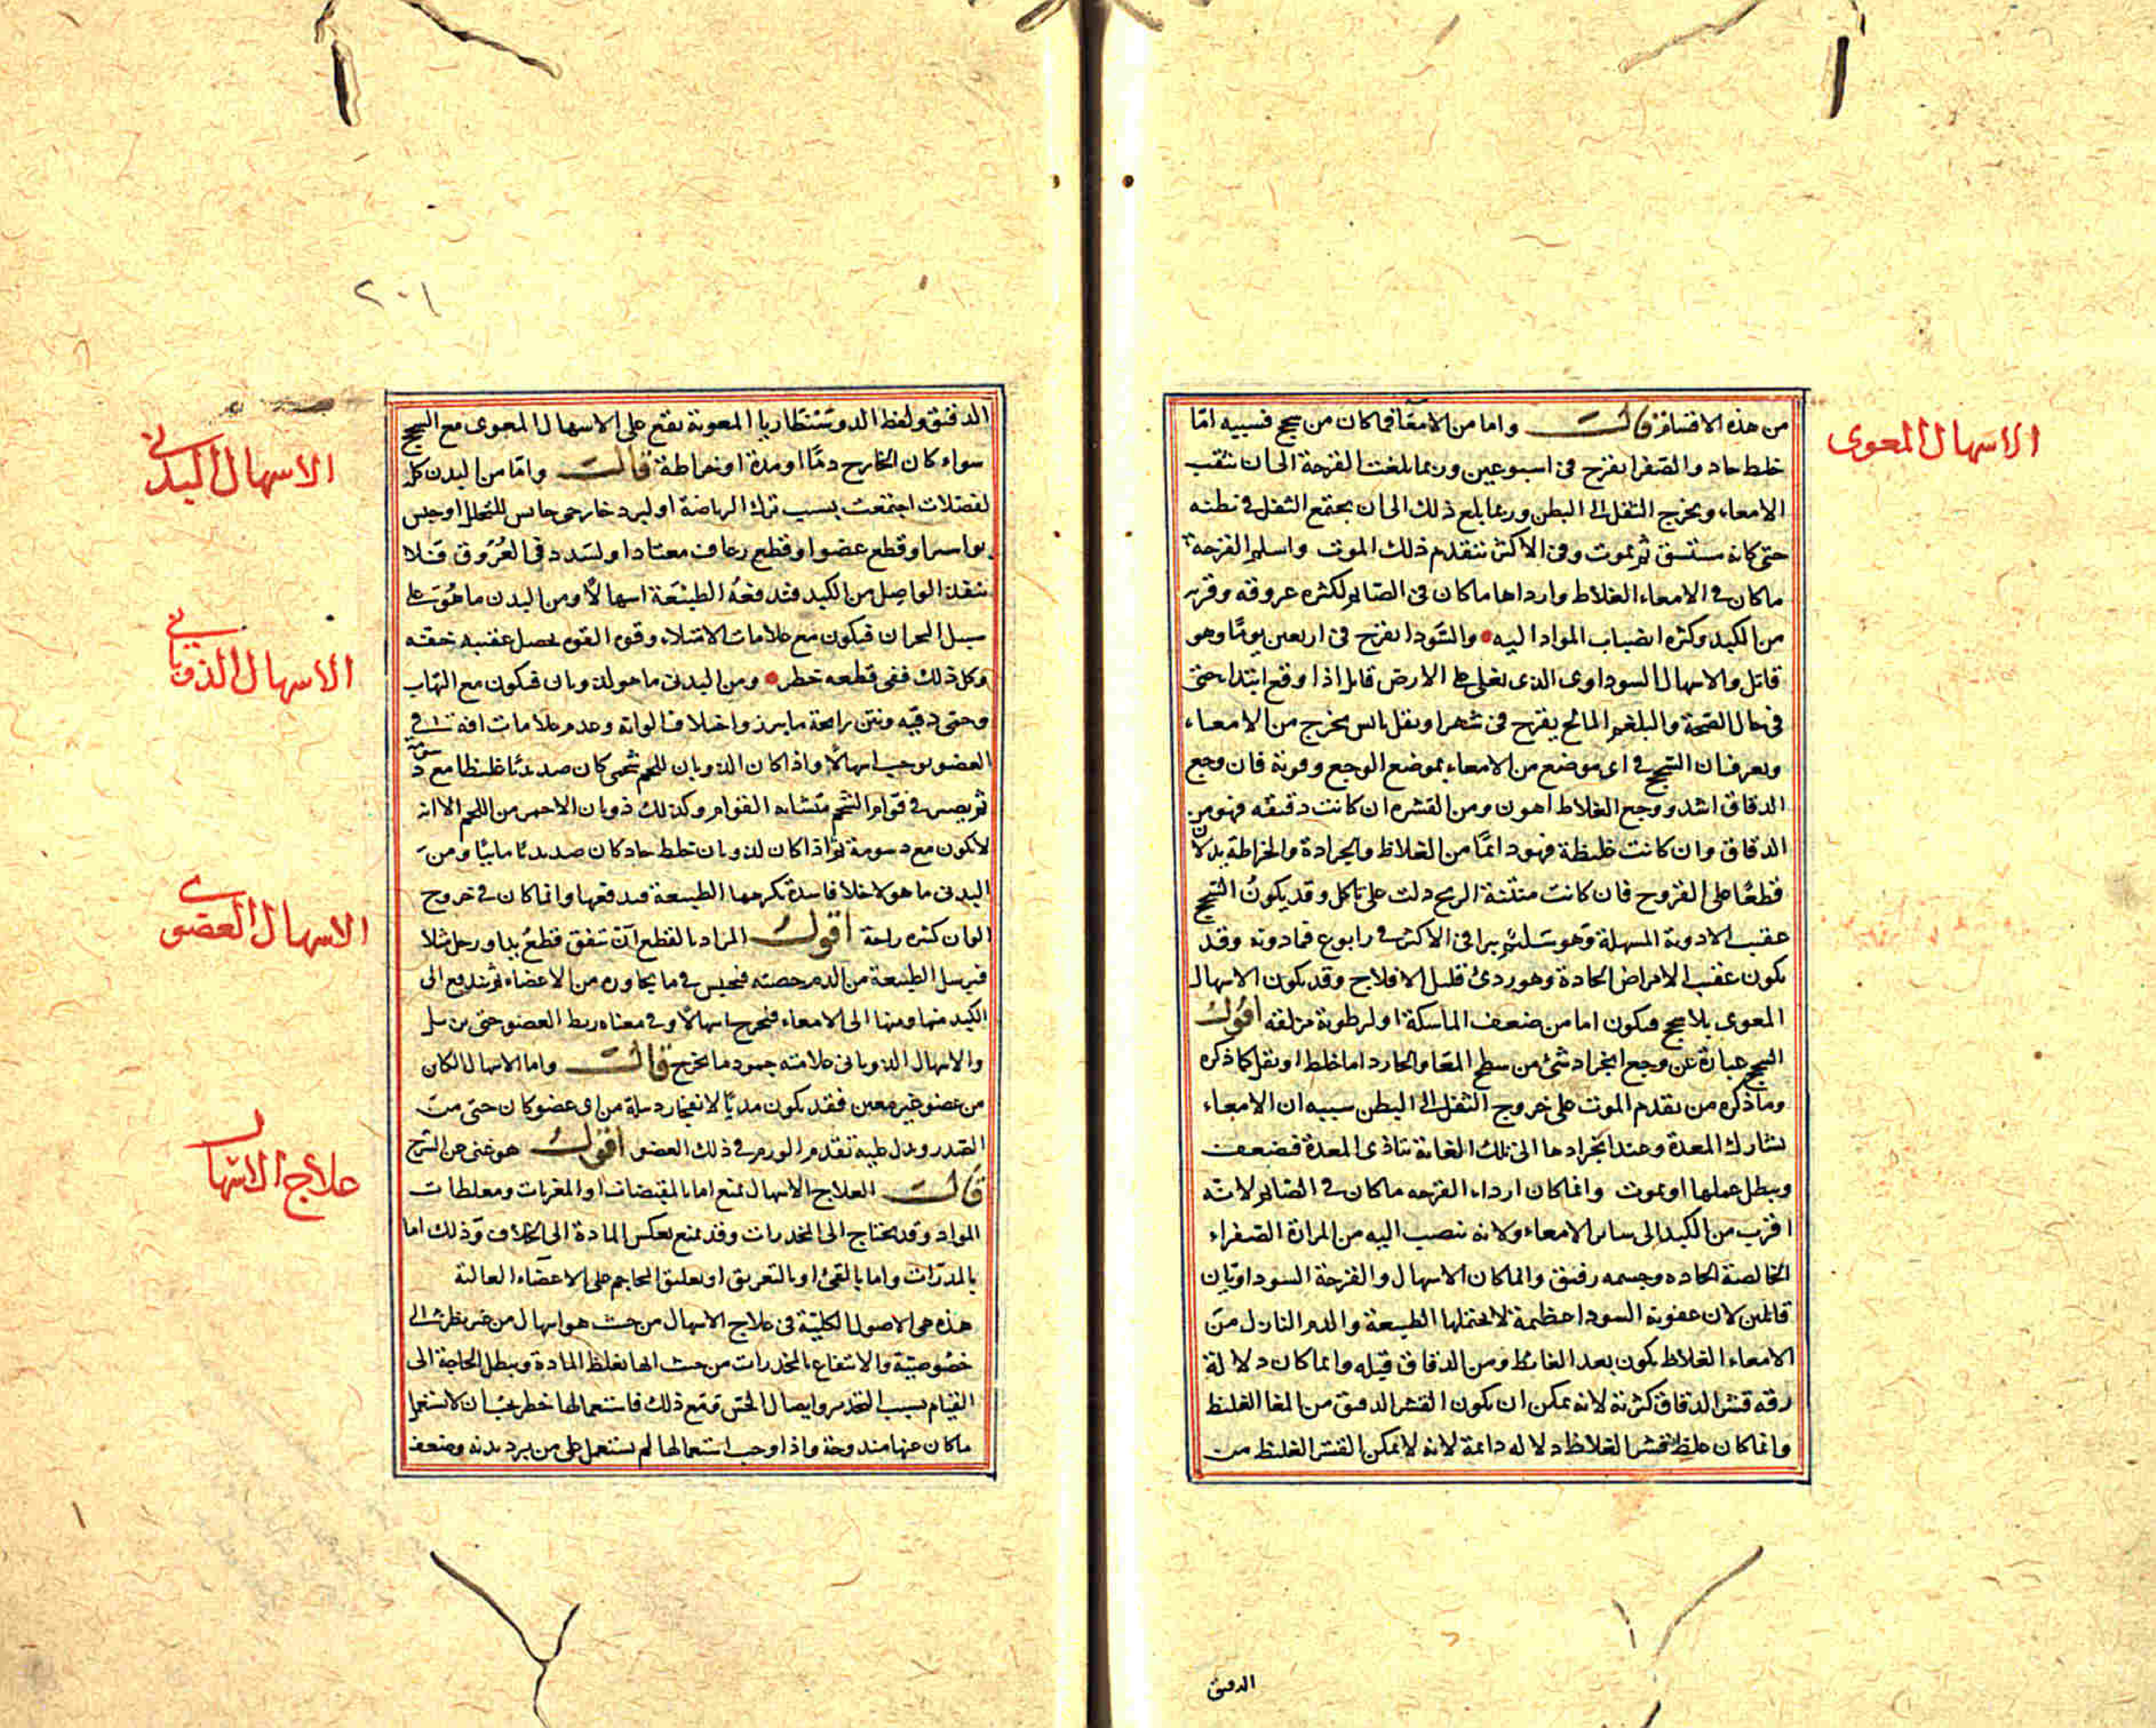 الاسهال المعوى
من هذه الاقسام قالت واما من الامعا فما كان من سحج فسببه امّا
خلط حاد والصفرا يقرح فى اسبوعين وربما بلغت القرحة الى ان تثقب
الامعاء ويخرج الثفل الى البطن وربما بلغ ذلك الى ان يجتمع الثفل فى بطنه
حتى كانه مستسق ثم يموت وفى الاكثر يتقدم ذلك الموت واسلم القرحة
ما كان فى الامعاء الغلاظ وارداها ما كان فى الصايم لكثره عروقه وقربه
من الكبد وكثره انصباب المواد اليه والسّودا يقرح فى اربعين يومًا وهو
قاتل والاسهال السوداوى الذى يغلى على الارض قاتل اذا وقع ابتداء حتى
فى حال الصحة والبلغم المالح يقرح فى شهر او ثفل يابس يخرج من الامعاء
ويعرف ان السحج فى اى موضع من الامعاء بموضع الوجع وقوته فان وجع
الدقاق اشد ووجع الغلاظ اهون ومن القشره ان كانت دقيقه فهو من
الدقاق وان كانت غليظة فهو دائمًا من الغلاظ والجرادة والخراطة يدلان
قطعًا على القروح فان كانت منتنة الريح دلت على تاكل وقد يكون السحج
عقيب الادوية المسهلة وهو سليم يبرا فى الاكثر فى رابوع فما دونه وقد
يكون عقيب الامراض الحادة وهو ردئ قليل الافلاح وقد يكون الاسهال
المعوى بلا سحج فيكون اما من ضعف الماسكة او لرطوبة مزلقه اقول
السحج عبارة عن وجع انجراد شئ من سطح المعا والجارد اما خلط او ثفل كما ذكره
وما ذكره من تقدم الموت على خروج الثفل الى البطن سببه ان الامعاء
تشارك المعدة وعند انجرادها الى تلك الغاية تتاذى المعدة فيضعف
ويبطل عملها او يموت وانما كان ارداء القرحه ما كان فى الصايم لانه
اقرب من الكبد الى ساير الامعاء ولانه تنصب اليه من المرارة الصفراء
الخالصة الحاده وجسمه رقيق وانما كان الاسهال والقرحة السوداويان
قاتلين لان عفونة السودا عظيمة لا يحتملها الطبيعة والدم النازل من
الامعاء الغلاظ يكون بعد الغايط ومن الدقاق قبله وانما كان دلالة
رقه قشر الدقاق كثرية لانه يمكن ان يكون القشر الدقيق من المعا الغليظ
وانما كان غلظ قشر الغلاظ دلاله دائمة لانه لا يمكن القشر الغليظ من
الدقيق
٢٠١
الدقيق ولفظ الدوسنطاريا المعوية يقع على الاسهال المعوى مع السحج
سواء كان الخارج دمًا او مدة او خراطة قالت وامّا من البدن كله
الاسهال البدنى
لفضلات اجتمعت بسبب ترك الرياضة او لبرد خارجى حابس للتحلل او حبس
بواسير او قطع عضو او قطع رعاف معتاد او لسدد فى العروق فلا
ينفذ الواصل من الكبد فتدفعه الطبيعة اسهالًا ومن البدن ما هو على
سبيل البحران فيكون مع علامات الامتلاء وقوه القوه يحصل عقيبه خفه
وكل ذلك ففى قطعه خطر ومن البدنى ما هو لذوبان فيكون مع التهاب
الاسهال الذوبانى
وحمى دقيه ونتن رايحة ما يبرز واختلاف الوانه وعدم علامات افة فى
العضو يوجب اسهالًا واذا كان الذوبان للحم شحمى كان صديديًا غليظا مع دسومة
ثم يصير فى قوام الشحم متشابه القوام وكذلك ذوبان الاحمر من اللحم الا انه
لا يكون مع دسومة ثم اذا كان لذوبان خلط حاد كان صديديًا مائيًا ومن
البدنى ما هو لاخلاط فاسدة تكرهها الطبيعة فيدفعها وانما كان فى خروج
الوان كثيره راحة اقول المراد بالقطع ان يتفق قطع يد او رجل مثلا
الاسهال العضوى
فيرسل الطبيعة من الدم حصته فيحبس فى ما يجاوره من الاعضاء ثم يندفع الى
الكبد منها ومنها الى الامعاء فيخرج اسهالًا وفى معناه ربط العضو حتى
والاسهال الذوبانى علامته جمود ما يخرج قالت واما الاسهال الكاين
من عضو غير معين فقد يكون مديًا لانفجار دبيلة من اى عضو كان حتى من
الصدر ويدل عليه تقدم الورم فى ذلك العضو اقول هو غنى عن الشرح
قالت العلاج الاسهال يمنع اما بالمقبضات او المغريات ومغلظات
علاج الاسهال
المواد وقد يحتاج الى المخدرات وقد يمنع بعكس المادة الى الخلاف وذلك اما
بالمدرّات واما بالقئ او بالتعريق او بتعليق المحاجم على الاعضاء العالية
هذه هى الاصول الكليّة فى علاج الاسهال من حيث هو اسهال من غير نظر الى
خصوصيّة والانتفاع بالمخدرات من حيث انها تغلظ المادة ويبطل الحاجة الى
القيام بسبب التخدير وابطال الحس ومع ذلك فاستعمالها خطر يجب ان لا تستعمل
ما كان عنها مندوحة واذا وجب استعمالها لم تستعمل على من برد بدنه وضعف